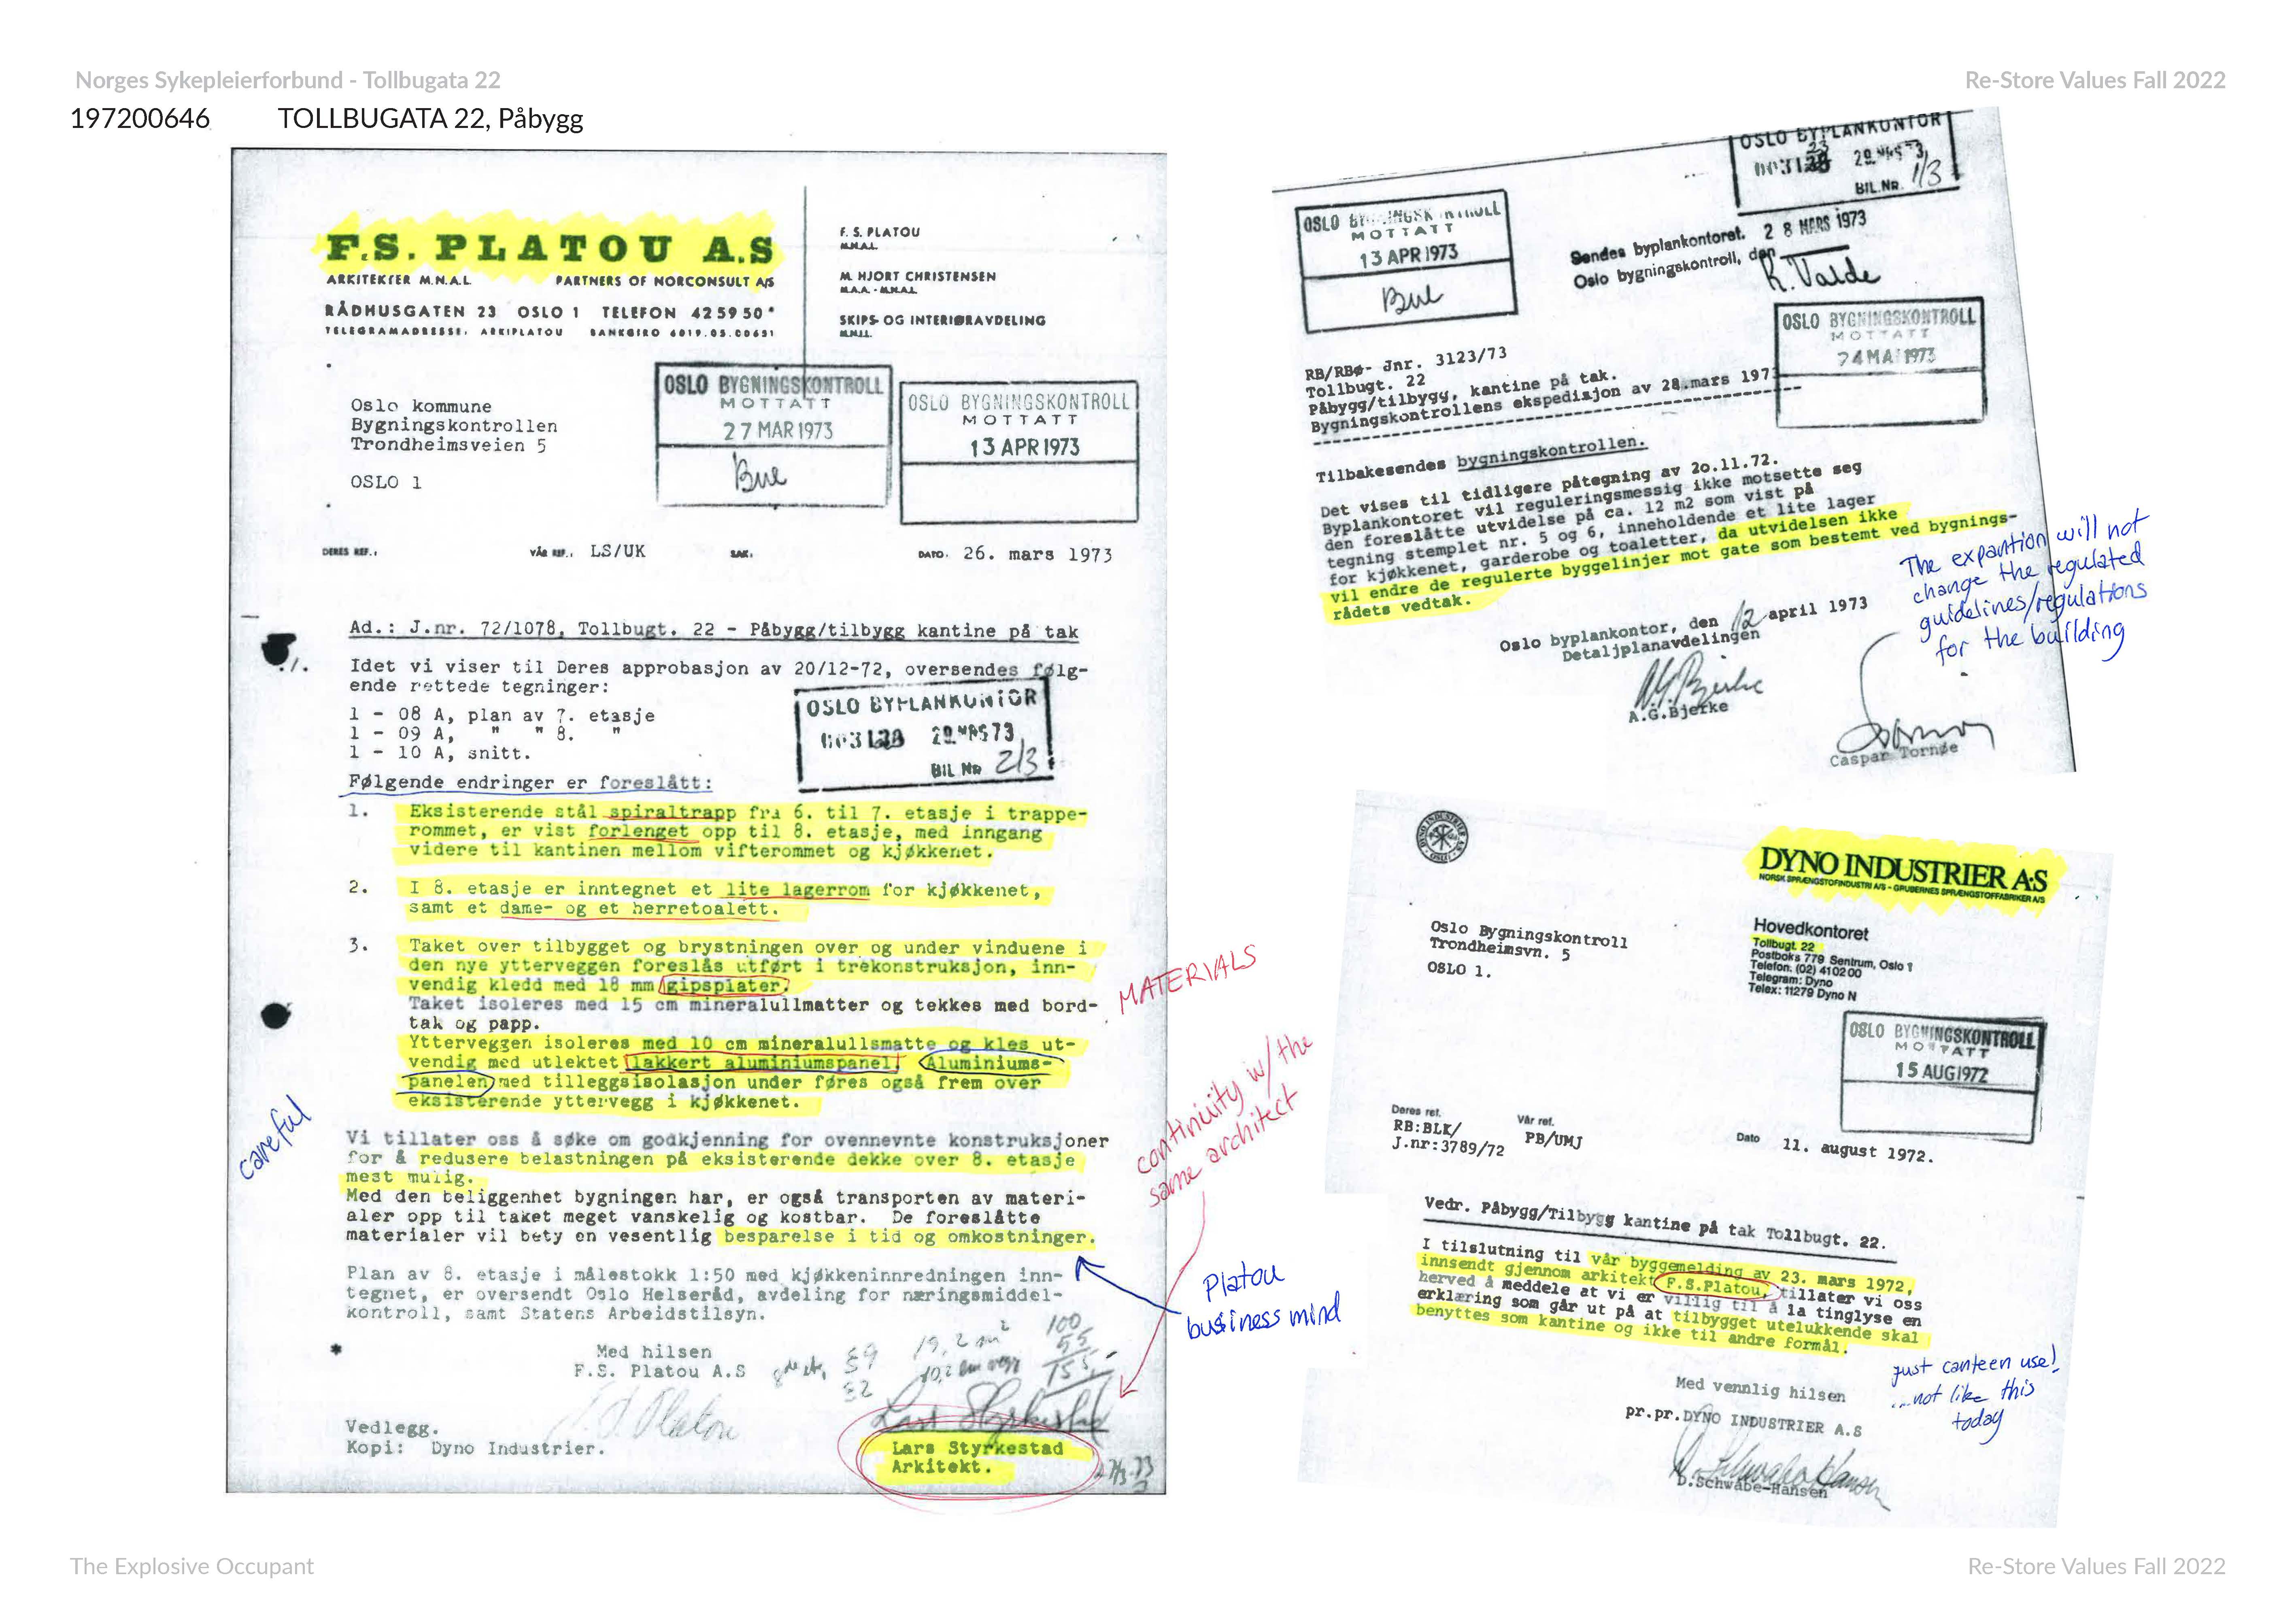 Norges Sykepleierforbund - Tollbugata 22
Re-Store Values Fall 2022
197200646 TOLLBUGATA 22, Påbygg
F.S. PLATOU A.S
ARKITEKTER M.N.A.L. PARTNERS OF NORCONSULT A/S
RÅDHUSGATEN 23 OSLO 1 TELEFON 42 59 50*
TELEGRAMADRESSE: ARKIPLATOU BANKGIRO 6019.05.00651
F. S. PLATOU
M.N.A.L.
M. HJORT CHRISTENSEN
M.A.A. - M.N.A.L.
SKIPS- OG INTERIØRAVDELING
M.N.I.L.
Oslo kommune
Bygningskontrollen
Trondheimsveien 5
OSLO 1
OSLO BYGNINGSKONTROLL
MOTTATT
27 MAR 1973
Bue
OSLO BYGNINGSKONTROLL
MOTTATT
13 APR 1973
DERES REF.: VÅR REF.: LS/UK SAK: DATO: 26. mars 1973
Ad.: J.nr. 72/1078, Tollbugt. 22 - Påbygg/tilbygg kantine på tak
Idet vi viser til Deres approbasjon av 20/12-72, oversendes følg-
ende rettede tegninger:
1 - 08 A, plan av 7. etasje
1 - 09 A, " " 8. "
1 - 10 A, snitt.
OSLO BYPLANKONTOR
29 MRS 73
BIL NR 2/3
Følgende endringer er foreslått:
1. Eksisterende stål spiraltrapp fra 6. til 7. etasje i trappe-
rommet, er vist forlenget opp til 8. etasje, med inngang
videre til kantinen mellom vifterommet og kjøkkenet.
2. I 8. etasje er inntegnet et lite lagerrom for kjøkkenet,
samt et dame- og et herretoalett.
3. Taket over tilbygget og brystningen over og under vinduene i
den nye ytterveggen foreslås utført i trekonstruksjon, inn-
vendig kledd med 18 mm gipsplater.
Taket isoleres med 15 cm mineralullmatter og tekkes med bord-
tak og papp.
Ytterveggen isoleres med 10 cm mineralullsmatte og kles ut-
vendig med utlektet lakkert aluminiumspanel. Aluminiums-
panelen med tilleggsisolasjon under føres også frem over
eksisterende yttervegg i kjøkkenet.
MATERIALS
careful
continuity w/ the
same architect
Vi tillater oss å søke om godkjenning for ovennevnte konstruksjoner
for å redusere belastningen på eksisterende dekke over 8. etasje
mest mulig.
Med den beliggenhet bygningen har, er også transporten av materi-
aler opp til taket meget vanskelig og kostbar. De foreslåtte
materialer vil bety en vesentlig besparelse i tid og omkostninger.
Platou
business mind
Plan av 8. etasje i målestokk 1:50 med kjøkkeninnredningen inn-
tegnet, er oversendt Oslo Helseråd, avdeling for næringsmiddel-
kontroll, samt Statens Arbeidstilsyn.
Med hilsen
F.S. Platou A.S
59 19,2 m² 100
82 55
155
Vedlegg.
Kopi: Dyno Industrier.
Lars Styrkestad
Lars Styrkestad
Arkitekt.
OSLO BYPLANKONTOR
29 MRS 73
BIL.NR. 1/3
OSLO BYGNINGSKONTROLL
MOTTATT
13 APR 1973
Bue
Sendes byplankontoret. 28 MARS 1973
Oslo bygningskontroll, den
R. Valde
OSLO BYGNINGSKONTROLL
MOTTATT
24 MAI 1973
RB/RBø- Jnr. 3123/73
Tollbugt. 22
Påbygg/tilbygg, kantine på tak.
Bygningskontrollens ekspedisjon av 28.mars 1973
Tilbakesendes bygningskontrollen.
Det vises til tidligere påtegning av 20.11.72.
Byplankontoret vil reguleringsmessig ikke motsette seg
den foreslåtte utvidelse på ca. 12 m2 som vist på
tegning stemplet nr. 5 og 6, inneholdende et lite lager
for kjøkkenet, garderobe og toaletter, da utvidelsen ikke
vil endre de regulerte byggelinjer mot gate som bestemt ved bygnings-
rådets vedtak.
The expantion will not
change the regulated
guidelines/regulations
for the building
Oslo byplankontor, den 12 april 1973
Detaljplanavdelingen
A.G.Bjerke
Caspar Tornøe
DYNO INDUSTRIER A.S
NORSK SPRÆNGSTOFINDUSTRI A/S - GRUBERNES SPRÆNGSTOFFABRIKER A/S
Oslo Bygningskontroll
Trondheimsvn. 5
OSLO 1.
Hovedkontoret
Tollbugt. 22
Postboks 779 Sentrum, Oslo 1
Telefon: (02) 410200
Telegram: Dyno
Telex: 11279 Dyno N
OSLO BYGNINGSKONTROLL
MOTTATT
15 AUG 1972
Deres ref. Vår ref. Dato
RB:BLK/ PB/UMJ 11. august 1972.
J.nr:3789/72
Vedr. Påbygg/Tilbygg kantine på tak Tollbugt. 22.
I tilslutning til vår byggemelding av 23. mars 1972,
innsendt gjennom arkitekt F.S.Platou, tillater vi oss
herved å meddele at vi er villig til å la tinglyse en
erklæring som går ut på at tilbygget utelukkende skal
benyttes som kantine og ikke til andre formål.
just canteen use!
...not like this
today
Med vennlig hilsen
pr.pr.DYNO INDUSTRIER A.S
D.Schwabe-Hansen
The Explosive Occupant
Re-Store Values Fall 2022